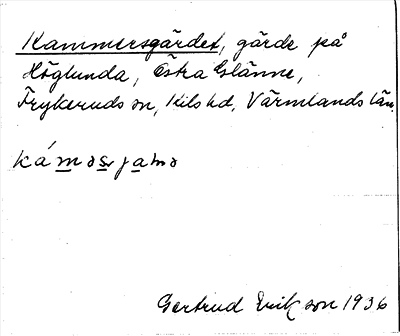 Kammersgärdet, gärde på
Höglunda, Östra Glänne,
Frykeruds sn, Kils hd, Värmlands län.
Gertrud Erikson 1936